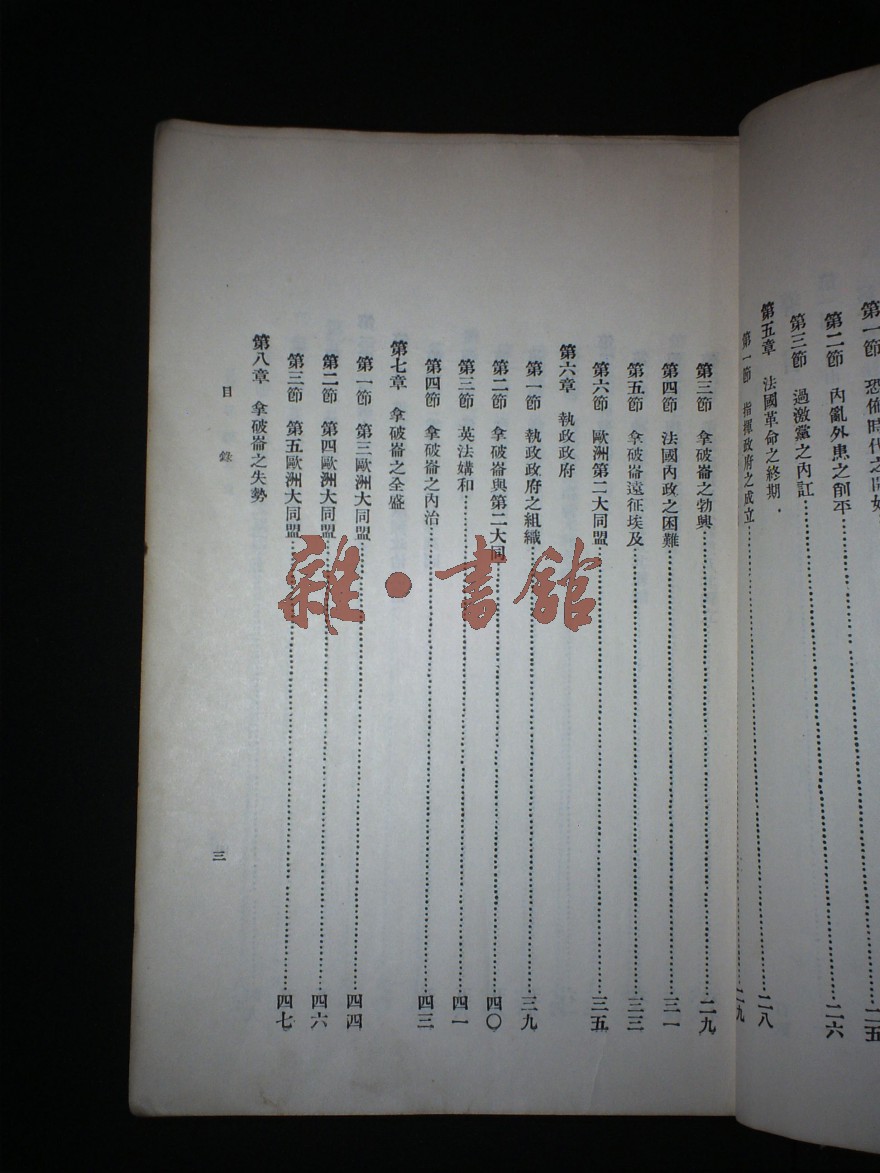 第一節 恐怖時代之開始……二五
第二節 內亂外患之削平……二六
第三節 過激黨之內訌……二八
第五章 法國革命之終期
第一節 指揮政府之成立……二九
第三節 拿破崙之勃興……二九
第四節 法國內政之困難……三一
第五節 拿破崙遠征埃及……三三
第六節 歐洲第二大同盟……三五
第六章 執政政府
第一節 執政政府之組織……三九
第二節 拿破崙與第二大同……四〇
第三節 英法媾和……四一
第四節 拿破崙之內治……四三
第七章 拿破崙之全盛
第一節 第三歐洲大同盟……四四
第二節 第四歐洲大同盟……四六
第三節 第五歐洲大同盟……四七
第八章 拿破崙之失勢
目錄
三
雜·書館